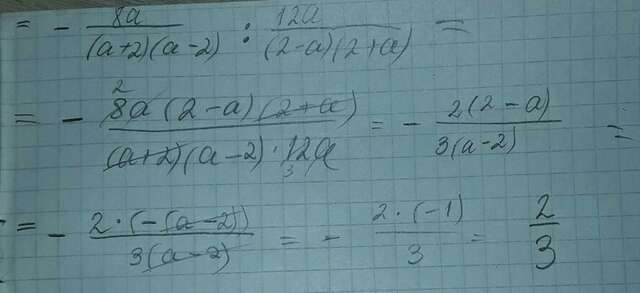 = - 8a/((a+2)(a-2)) : 12a/((2-a)(2+a)) =
= - (8a(2-a)(2+a))/((a+2)(a-2)·12a) = - (2(2-a))/(3(a-2)) =
= - (2·(-(a-2)))/(3(a-2)) = - (2·(-1))/3 = 2/3